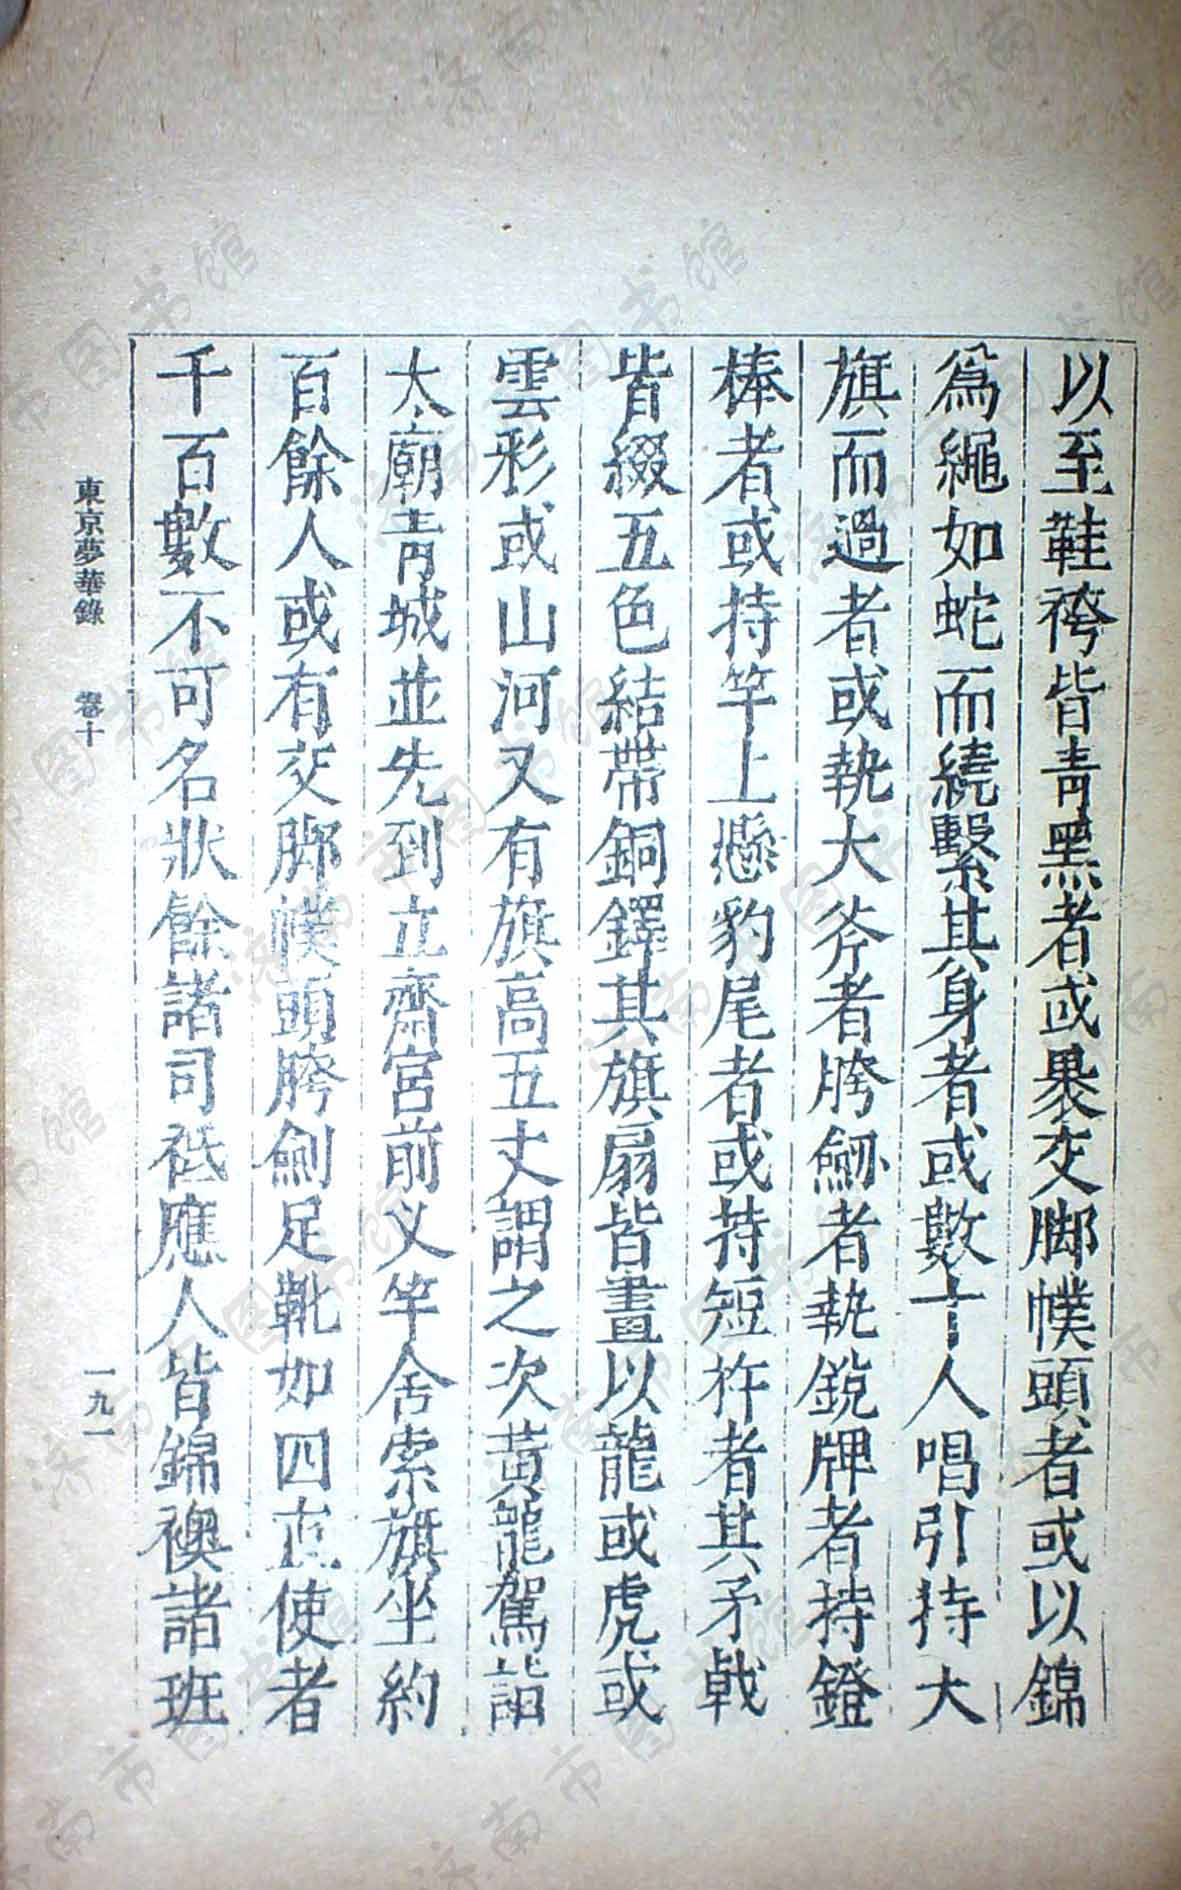 以至鞋袴皆青黑者或褁交脚幞頭者或以錦
爲繩如蛇而繞繫其身者或數十人唱引持大
旗而過者或執大斧者胯劒者執鋭牌者持鐙
棒者或持竿上懸豹尾者或持短杵者其矛戟
皆綴五色結帶銅鐸其旗扇皆畫以龍或虎或
雲彩或山河又有旗高五丈謂之次黃龍駕詣
太廟青城並先到立齋宮前叉竿舍索旗坐約
百餘人或有交脚幞頭胯劍足靴如四直使者
千百數不可名狀餘諸司祗應人皆錦襖諸班
東京夢華錄 卷十 一九一
济南市图书馆